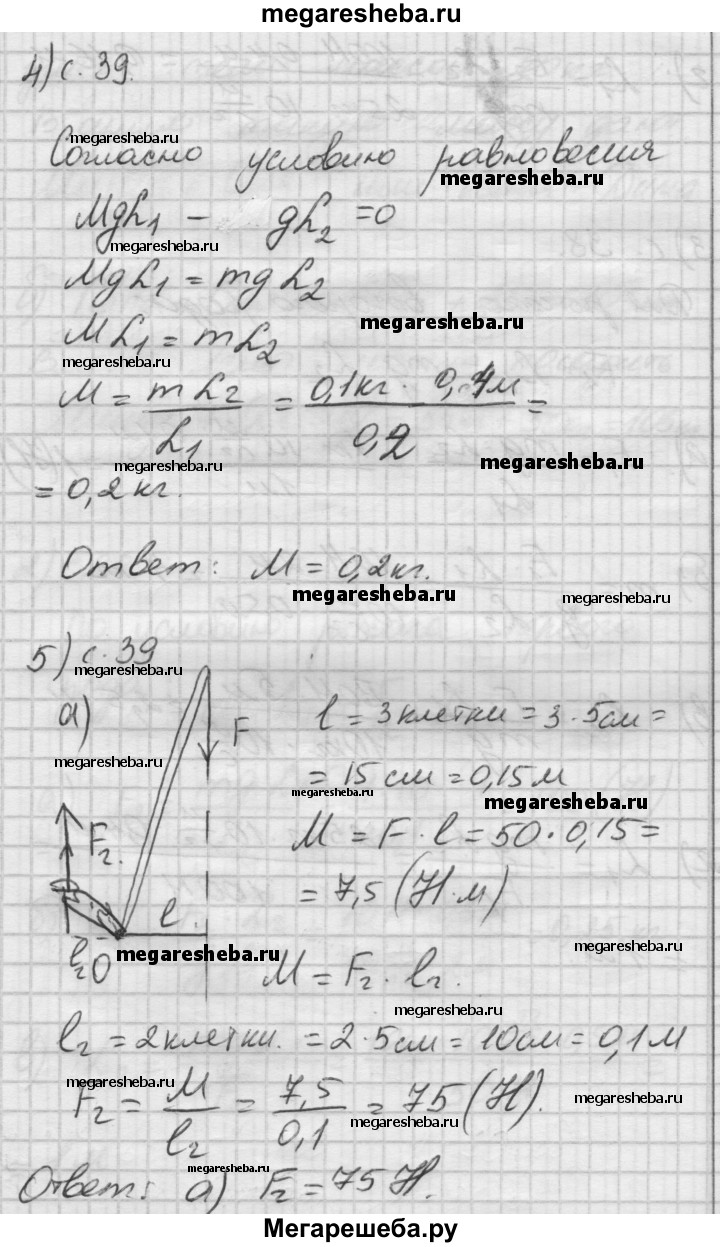 megaresheba.ru
4) с. 39.
megaresheba.ru
Согласно условию равновесия
megaresheba.ru
MgL₁ - gL₂ = 0
megaresheba.ru
MgL₁ = mgL₂
megaresheba.ru
ML₁ = mL₂
megaresheba.ru
M = mL₂ / L₁ = 0,1кг · 0,4м / 0,2 =
megaresheba.ru
megaresheba.ru
= 0,2 кг.
Ответ: M = 0,2кг.
megaresheba.ru
megaresheba.ru
5) с. 39
megaresheba.ru
а)
F
l = 3 клетки = 3 · 5см =
megaresheba.ru
= 15 см = 0,15 м
megaresheba.ru
megaresheba.ru
F₂.
M = F · l = 50 · 0,15 =
= 7,5 (Н·м)
megaresheba.ru
l
l₂
O
megaresheba.ru
megaresheba.ru
M = F₂ · l₂.
megaresheba.ru
l₂ = 2 клетки. = 2 · 5см = 10см = 0,1 м
megaresheba.ru
F₂ = M / l₂ = 7,5 / 0,1 = 75 (Н).
megaresheba.ru
megaresheba.ru
megaresheba.ru
Ответ: а) F₂ = 75 Н.
megaresheba.ru
Мегарешеба.ру